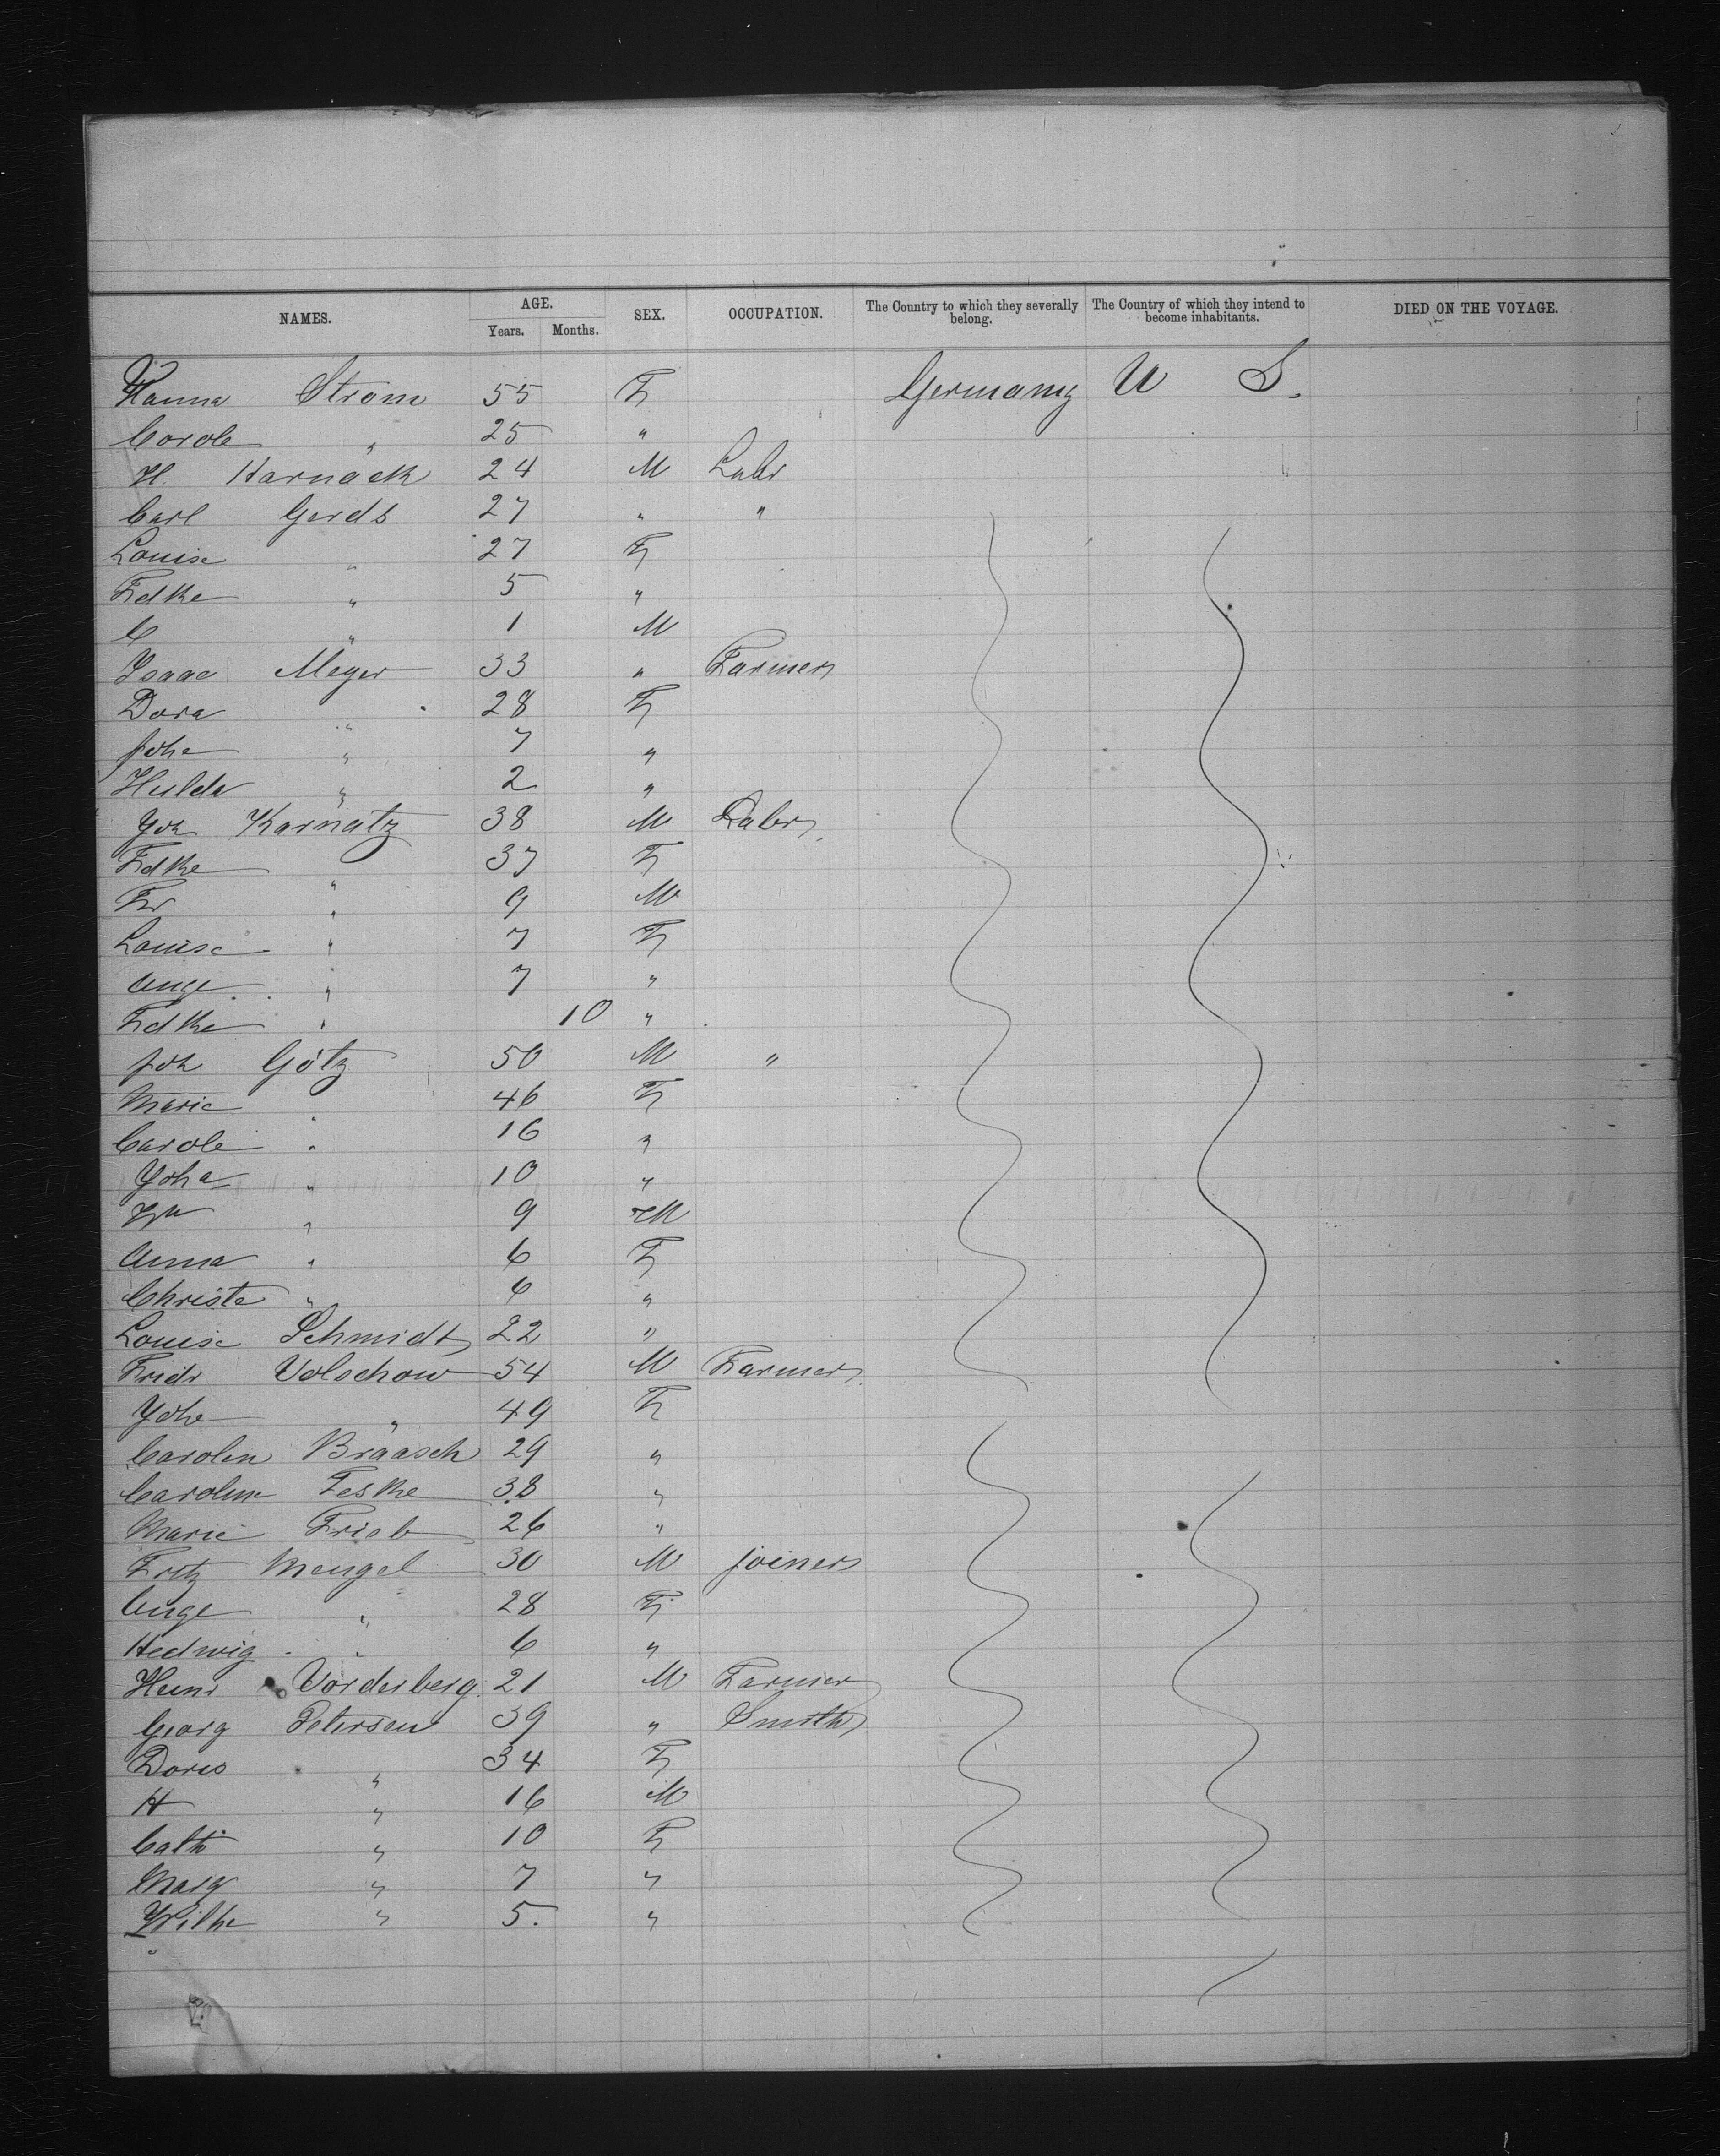 NAMES. AGE. Years. Months. SEX. OCCUPATION. The Country to which they severally belong. The Country of which they intend to become inhabitants. DIED ON THE VOYAGE.
Hanna Strom 55 F Germany U S.
Carole " 25 "
H. Harnack 24 M Labr
Carl Gerds 27 " "
Louise " 27 F
Fdke " 5 "
C " 1 M
Isaac Meyer 33 " Farmer
Dora " 28 F
Johe " 7 "
Hulda " 2 "
Joh Karnatz 38 M Labr
Fdke " 37 F
Fr " 9 M
Louise " 7 F
Auge " 7 "
Fdke " 10 "
Joh Götz 50 M "
Marie " 46 F
Carole " 16 "
Joha " 10 "
" 9 M
Anna " 6 F
Christe " 6 "
Louise Schmidt 22 "
Fridr Volschow 54 M Farmer
Johe " 49 F
Carolin Braasch 29 "
Caroline Feske 38 "
Marie Frieb 26 "
Fritz Mengel 30 M joiner
Auge " 28 F
Hedwig " 6 "
Heinr Vorderberg 21 M Farmer
Georg Petersen 39 " Smith
Doris " 34 F
H " 16 M
Cath " 10 F
Marg " 7 "
Wilhe " 5. "